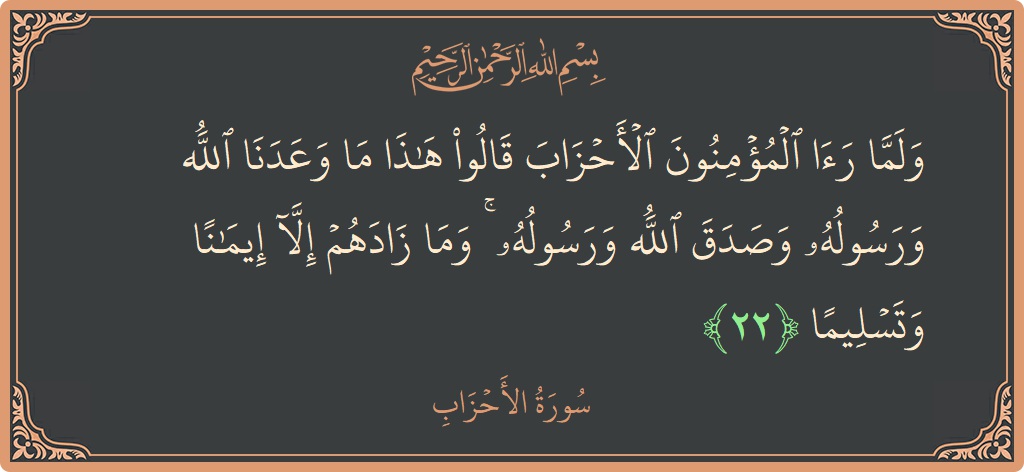 بِسْمِ اللَّهِ الرَّحْمَٰنِ الرَّحِيمِ
وَلَمَّا رَءَا ٱلْمُؤْمِنُونَ ٱلْأَحْزَابَ قَالُوا۟ هَـٰذَا مَا وَعَدَنَا ٱللَّهُ
وَرَسُولُهُۥ وَصَدَقَ ٱللَّهُ وَرَسُولُهُۥ ۚ وَمَا زَادَهُمْ إِلَّآ إِيمَـٰنًا
وَتَسْلِيمًا ﴿٢٢﴾
سُورَةُ الأَحْزَابِ